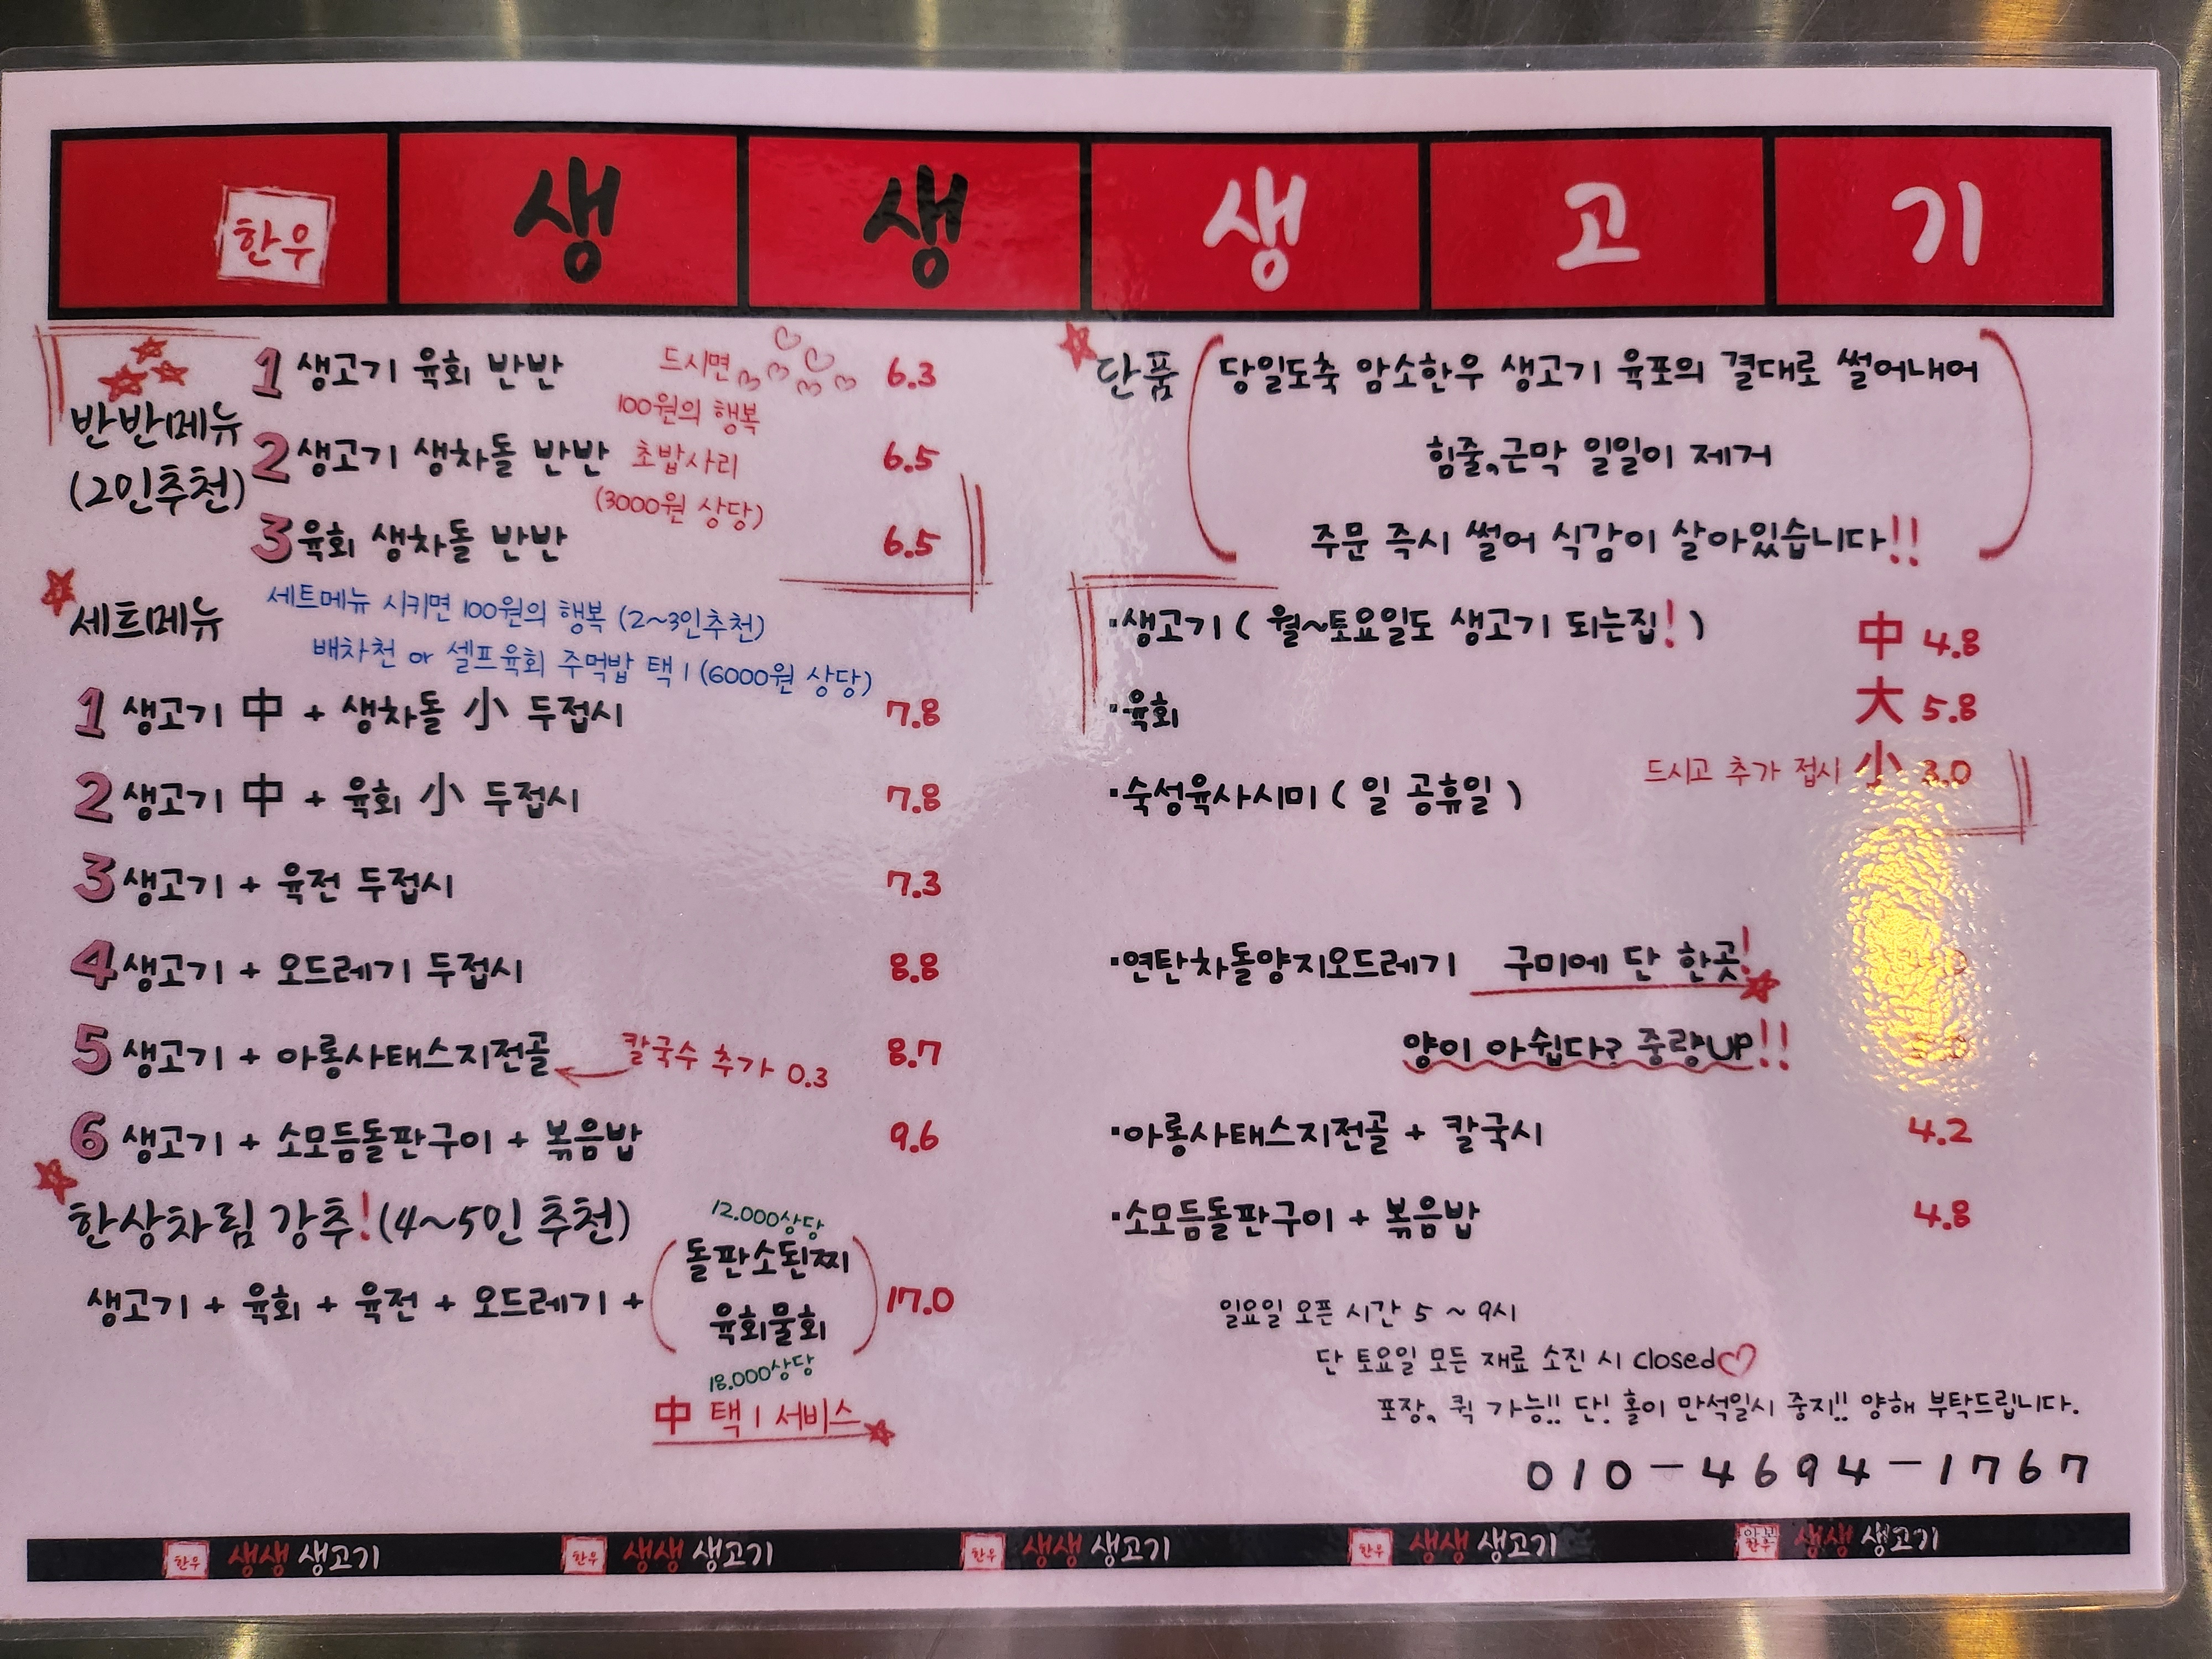 한우 생 생 생 고 기
반반메뉴
(2인추천)
1 생고기 육회 반반 6.3
2 생고기 생차돌 반반 6.5
3 육회 생차돌 반반 6.5
드시면
100원의 행복
초밥사리
(3000원 상당)
세트메뉴
세트메뉴 시키면 100원의 행복 (2~3인추천)
배차천 or 셀프육회 주먹밥 택 1 (6000원 상당)
1 생고기 中 + 생차돌 小 두접시 7.8
2 생고기 中 + 육회 小 두접시 7.8
3 생고기 + 육전 두접시 7.3
4 생고기 + 오드레기 두접시 8.8
5 생고기 + 아롱사태스지전골 8.7
칼국수 추가 0.3
6 생고기 + 소모듬돌판구이 + 볶음밥 9.6
한상차림 강추! (4~5인 추천)
12.000상당
생고기 + 육회 + 육전 + 오드레기 + (돌판소된찌 17.0
육회물회)
18.000상당
中 택 1 서비스
단품 (당일도축 암소한우 생고기 육포의 결대로 썰어내어
힘줄,근막 일일이 제거
주문 즉시 썰어 식감이 살아있습니다!!)
·생고기 ( 월~토요일도 생고기 되는집! ) 中 4.8
·육회 大 5.8
드시고 추가 접시 小 3.0
·숙성육사시미 ( 일 공휴일 )
·연탄차돌양지오드레기 구미에 단 한곳!
양이 아쉽다? 중량UP!!
·아롱사태스지전골 + 칼국시 4.2
·소모듬돌판구이 + 볶음밥 4.8
일요일 오픈 시간 5 ~ 9시
단 토요일 모든 재료 소진 시 closed♡
포장, 퀵 가능!! 단! 홀이 만석일시 중지!! 양해 부탁드립니다.
010-4694-1767
한우 생생 생고기 한우 생생 생고기 한우 생생 생고기 한우 생생 생고기 한우 생생 생고기